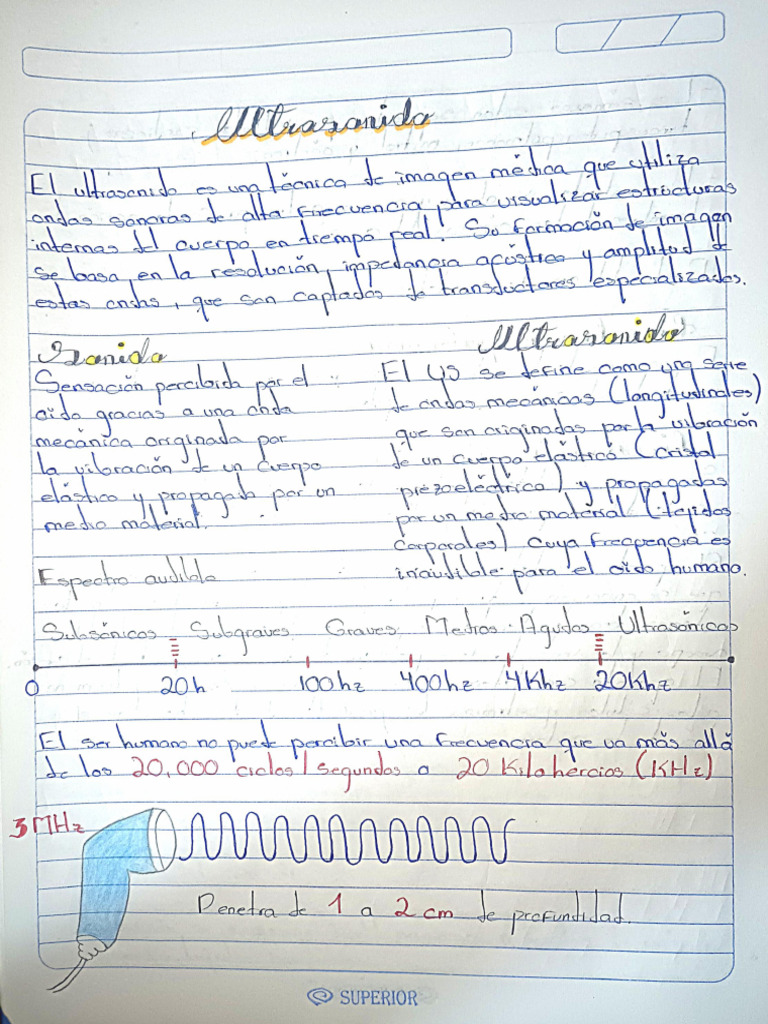 Ultrasonido
El ultrasonido es una técnica de imagen médica que utiliza
ondas sonoras de alta frecuencia para visualizar estructuras
internas del cuerpo en tiempo real. Su formación de imagen
se basa en la resolución, impedancia acústica y amplitud de
estas ondas, que son captadas de transductores especializados.
Sonido
Sensación percibida por el
oído gracias a una onda
mecánica originada por
la vibración de un cuerpo
elástico y propagada por un
medio material.
Ultrasonido
El US se define como una serie
de ondas mecánicas (longitudinales)
que son originadas por la vibración
de un cuerpo elástico (cristal
piezoeléctrico) y propagadas
por un medio material (tejidos
corporales) cuya frecuencia es
inaudible para el oído humano.
Espectro audible
Subsónicos Subgraves Graves Medios Agudos Ultrasónicos
0 20h 100hz 400hz 4Khz 20Khz
El ser humano no puede percibir una frecuencia que va más allá
de los 20.000 ciclos/segundos o 20 Kilohercios (KHz)
3MHz
Penetra de 1 a 2 cm de profundidad.
SUPERIOR